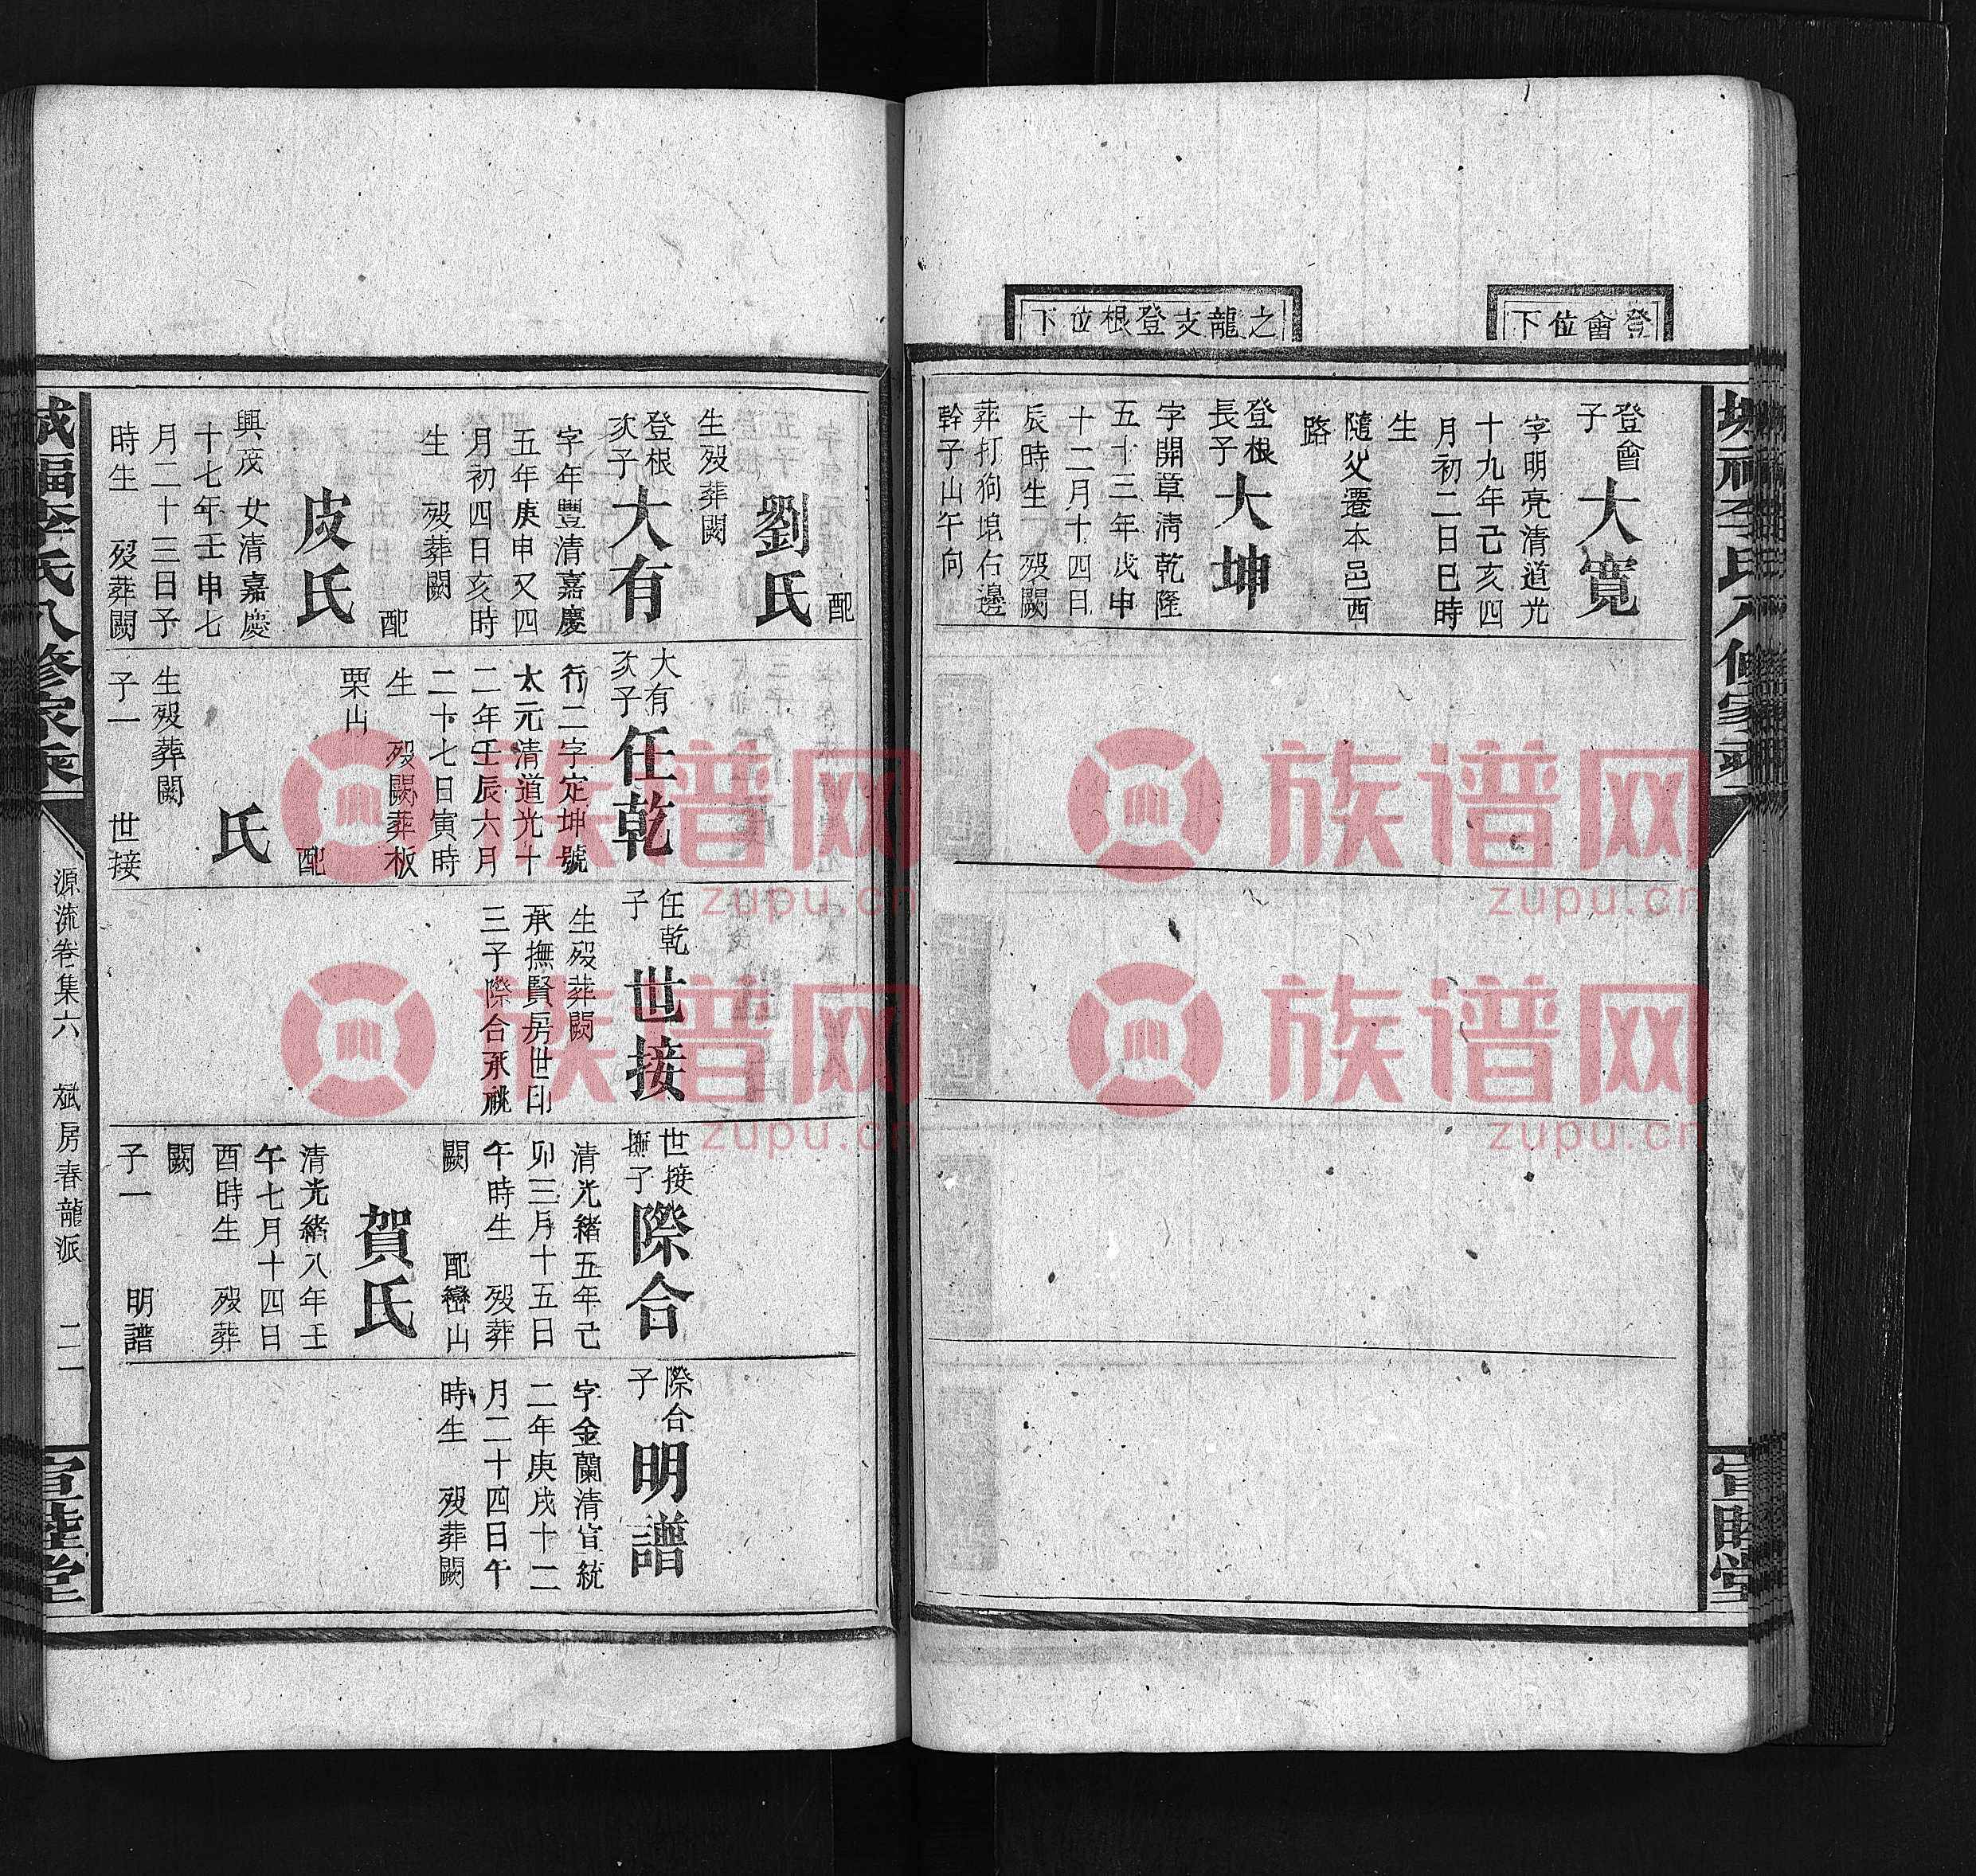 登會位下
之龍支登根位下
登會
子
大寬
字明亮清道光
十九年己亥四
月初二日巳時
生
隨父遷本邑西
路
登根
長子
大坤
字開章淸乾隆
五十三年戊申
十二月十四日
辰時生 歿闕
葬打狗塅右邊
幹子山午向
宣睦堂
配
劉氏
生歿葬闕
登根
次子
大有
字年豐清嘉慶
五年庚申又四
月初四日亥時
生 歿葬闕
配
皮氏
興茂女清嘉慶
十七年壬申七
月二十三日子
時生 歿葬闕
大有
次子
任乾
行二字定坤號
太元清道光十
二年壬辰六月
二十七日寅時
生 歿闕葬板
栗山
配
氏
生歿葬闕
子一 世接
任乾
子
世接
生歿葬闕
承撫賢房世印
三子際合承祧
世接
撫子
際合
清光緒五年己
卯三月十五日
午時生 歿葬
闕 配巒山
賀氏
清光緒八年壬
午七月十四日
酉時生 歿葬
闕
子一 明譜
際合
子
明譜
字金蘭清宣統
二年庚戌十二
月二十四日午
時生 歿葬闕
福李氏八修家乘
源流卷集六 斌房春龍派 二一
宣睦堂
族谱网
zupu.cn
族谱网
zupu.cn
族谱网
zupu.cn
族谱网
zupu.cn